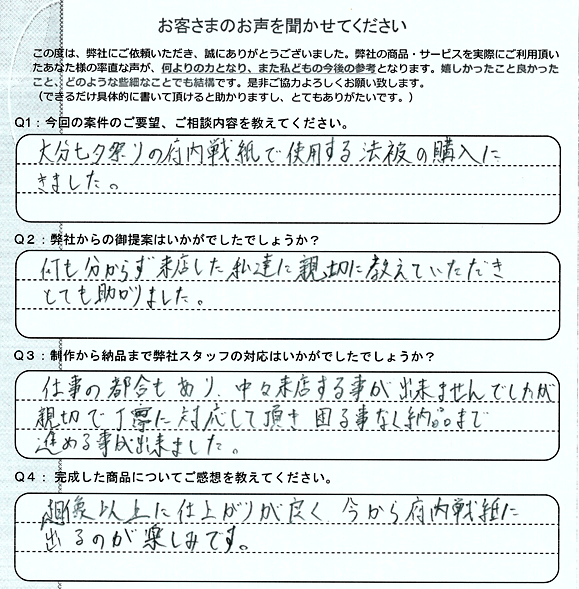 お客さまのお声を聞かせてください
この度は、弊社にご依頼いただき、誠にありがとうございました。弊社の商品・サービスを実際にご利用頂い
たあなた様の率直な声が、何よりの力となり、また私どもの今後の参考となります。嬉しかったこと良かった
こと、どのような些細なことでも結構です。是非ご協力よろしくお願い致します。
（できるだけ具体的に書いて頂けると助かりますし、とてもありがたいです。）
Q1：今回の案件のご要望、ご相談内容を教えてください。
大分七夕祭りの府内戦紙で使用する法被の購入に
きました。
Q2：弊社からの御提案はいかがでしたでしょうか？
何も分からず来店した私達に親切に教えていただき
とても助かりました。
Q3：制作から納品まで弊社スタッフの対応はいかがでしたでしょうか？
仕事の都合もあり、中々来店する事が出来ませんでしたが
親切で丁寧に対応して頂き困る事なく納品まで
進める事が出来ました。
Q4：完成した商品についてご感想を教えてください。
想像以上に仕上がりが良く今から府内戦紙に
出るのが楽しみです。